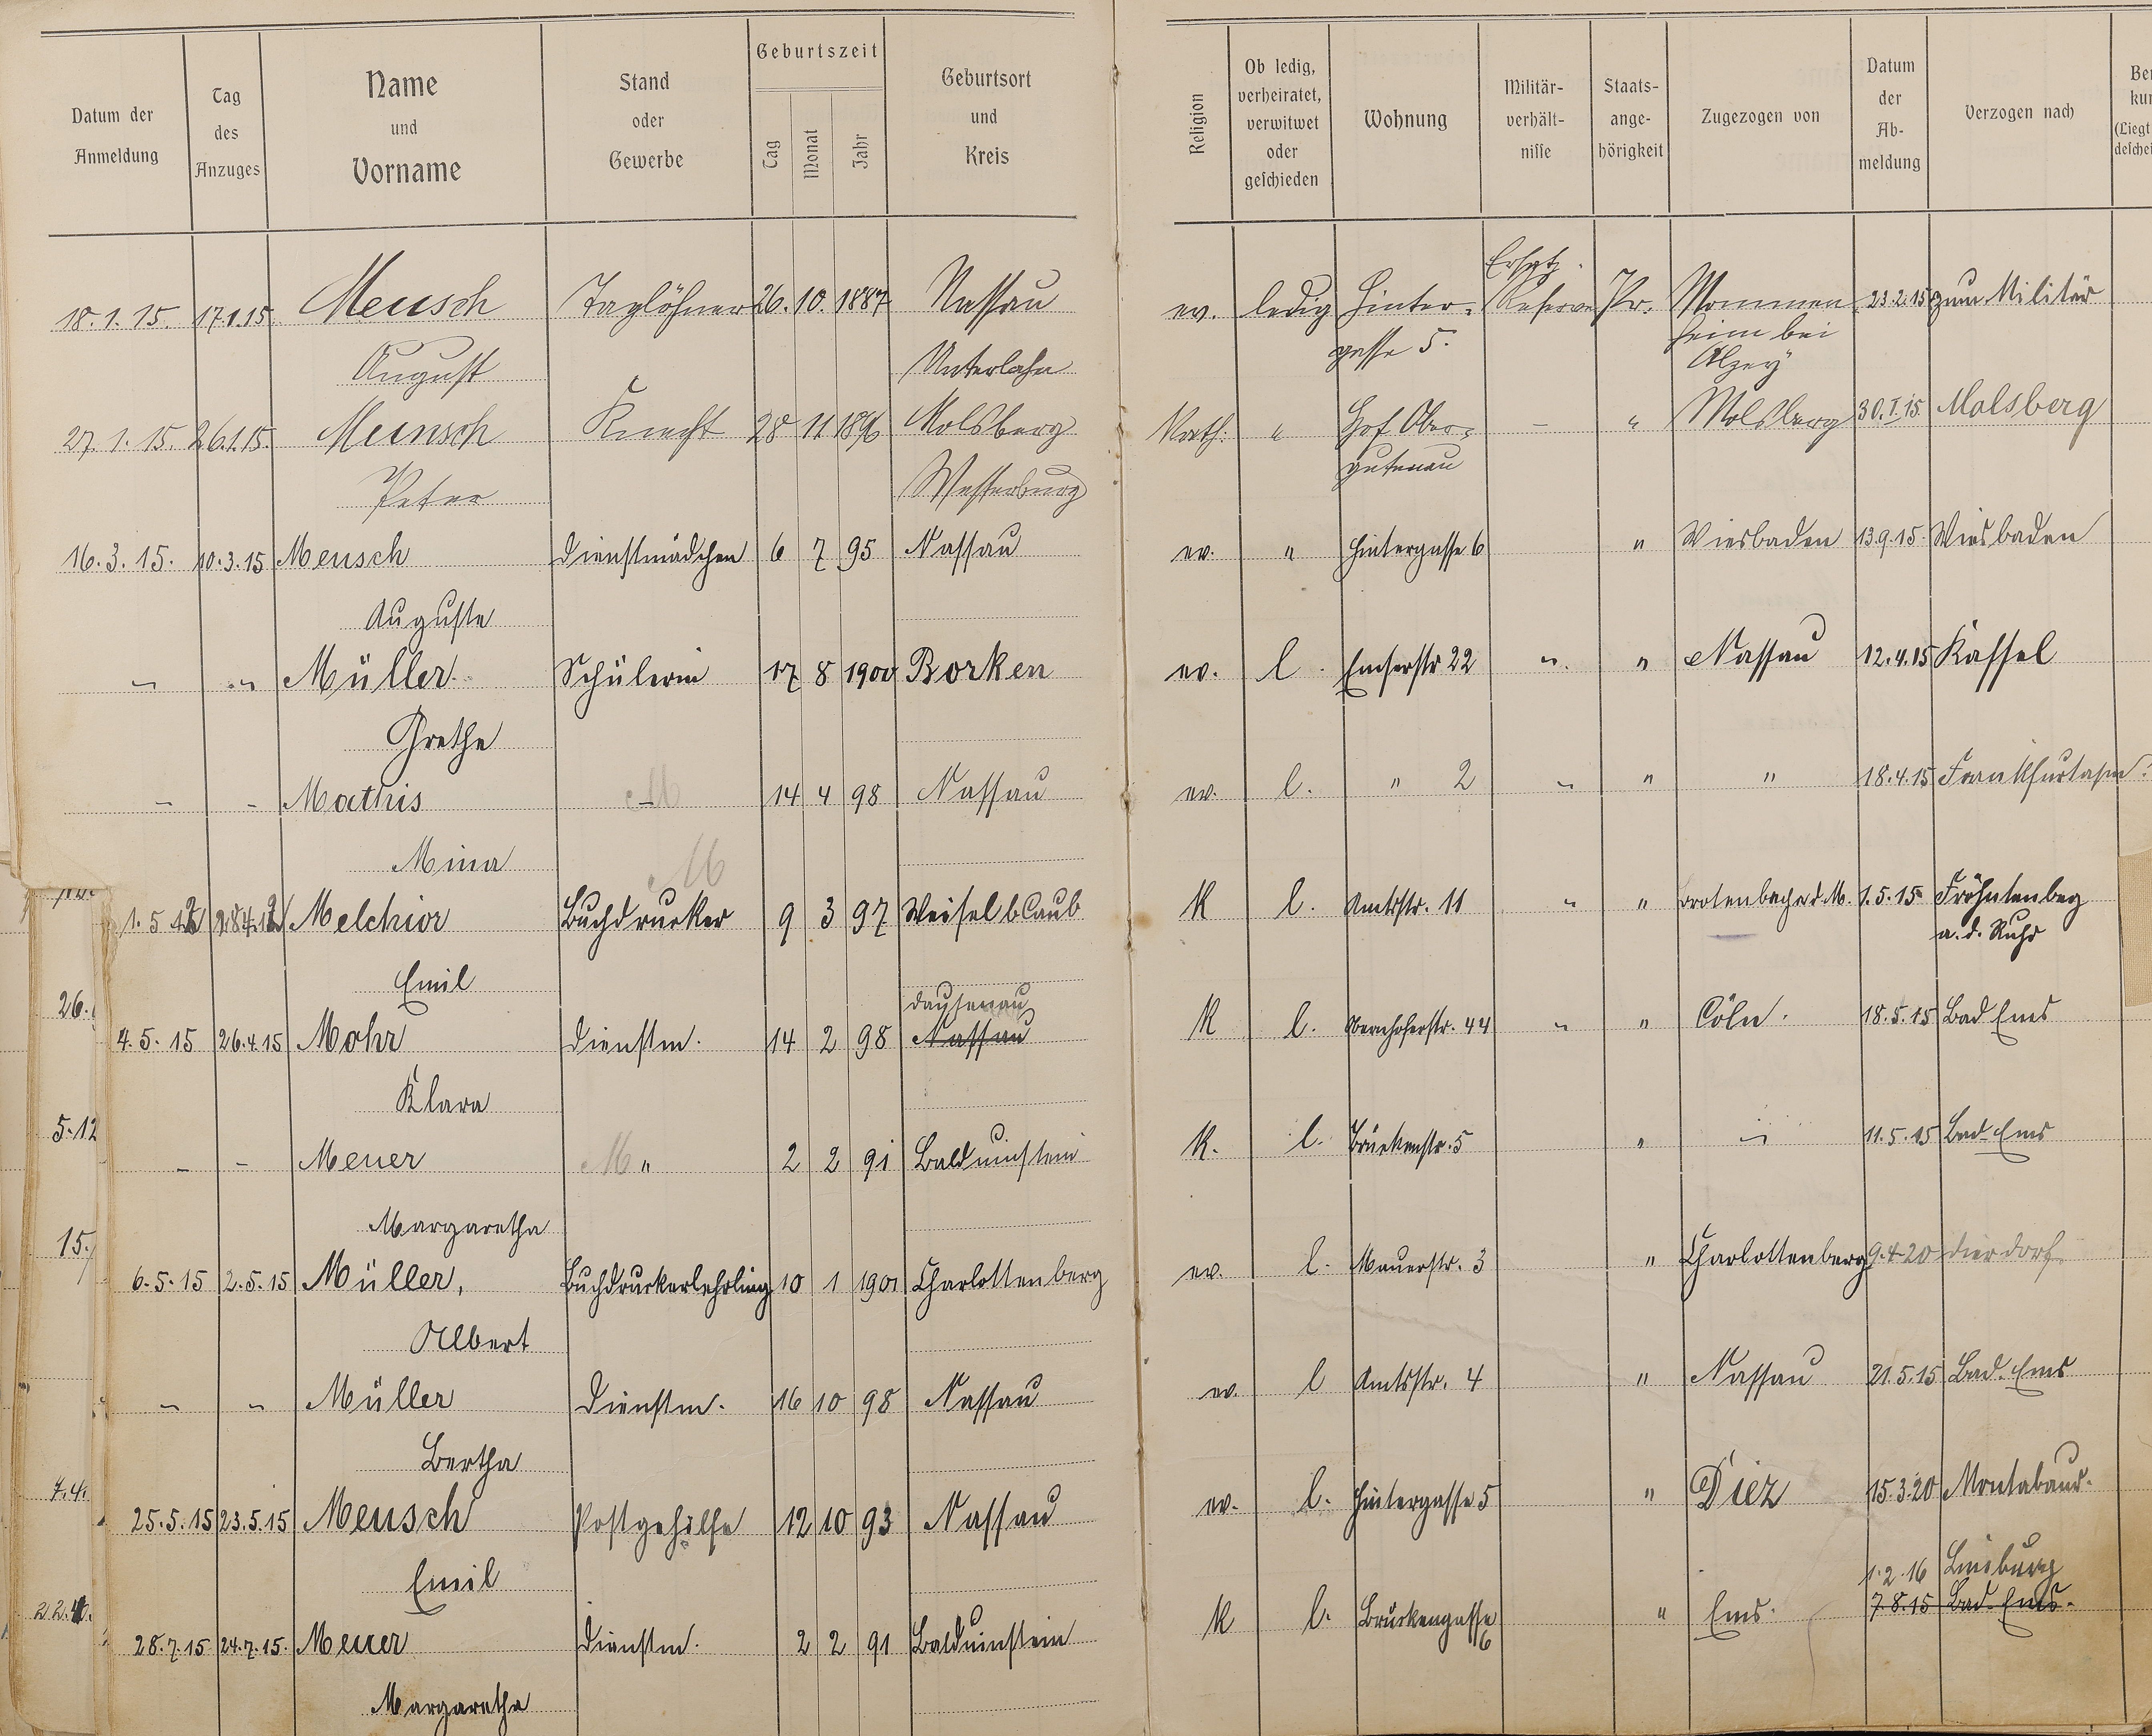 Datum der Anmeldung
Tag des Anzuges
Name und Vorname
Stand oder Gewerbe
Geburtszeit
Tag Monat Jahr
Geburtsort und Kreis
Religion
Ob ledig, verheiratet, verwitwet oder geschieden
Wohnung
Militär-verhält-nisse
Staats-ange-hörigkeit
Zugezogen von
Datum der Ab-meldung
Verzogen nach
18.1.15. 17.1.15. Meusch Taglöhner 26. 10. 1887 Nassau ev. ledig Hinter- Ersatz- Pr. Mommen- 23.2.15 zum Militär
August Unterlahn gasse 5. Reserve heim bei
Alzey
27.1.15. 26.1.15. Meinsch Knecht 28 11 1896 Molsberg Kath. " Hof Ober- – " Molsberg 30.I.15. Molsberg
Peter Westerburg gutenau
16.3.15. 10.3.15 Meusch Dienstmädchen 6 7 95 Nassau ev. " Hintergasse 6 " Wiesbaden 13.9.15. Wiesbaden
Auguste
" " Müller Schülerin 17 8 1900 Borken ev. l. Emserstr 22 " " Nassau 12.4.15 Kassel
Grethe
– – Mathis – 14 4 98 Nassau ev. l. " 2 " " " 18.4.15 Frankfurt a/m.
Mina
M
1.5 Melchior Buchdrucker 9 3 97 Weisel b Caub K l. Amtsstr. 11 " " 1.5.15 Fröhntenbeg
Emil a. d. Ruhr
26. Dausenau
4.5.15 26.4.15 Mohr Dienstm. 14 2 98 Nassau K l. Obernhoferstr. 44 " " Cöln. 18.5.15 Bad Ems
Klara
5.12
– – Meuer M " 2 2 91 Balduinstein K. l. Brückenstr. 5 " " 11.5.15 Bad-Ems
Margaretha
15.
6.5.15 2.5.15 Müller, Buchdruckerlehrling 10 1 1901 Charlottenberg ev. l. Mauerstr. 3 " Charlottenberg 9.4.20 Dierdorf
Albert
" " Müller Dienstm. 16 10 98 Nassau ev. l Amtsstr. 4 " Nassau 21.5.15 Bad-Ems
Bertha
7.4.
25.5.15 23.5.15 Meusch Postgehilfe 12 10 93 Nassau ev. l. Hintergasse 5 " Diez 15.3.20 Montabaur.
Emil
22.
1.2.16 Limburg
28.7.15 24.7.15. Meuer Dienstm. 2 2 91 Balduinstein K l. Brückengasse 6 " Ems. 7.8.15 Bad-Ems.
Margaretha